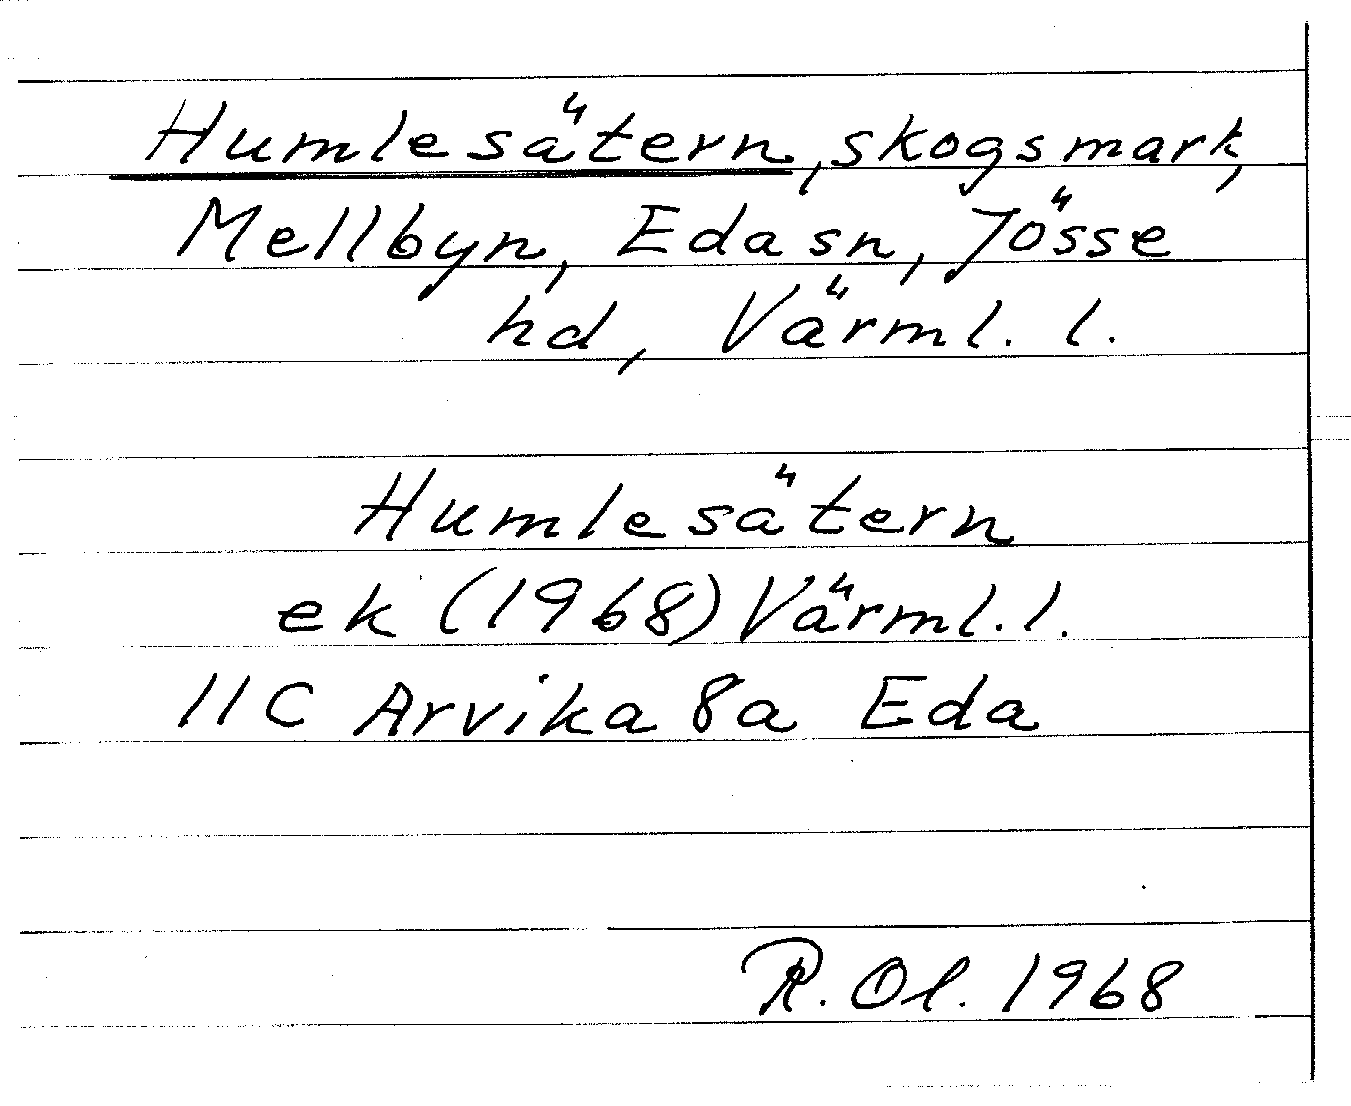 Humlesätern, skogsmark,
Mellbyn, Eda sn, Jösse
hd, Värml. l.
Humlesätern
ek (1968) Värml. l.
11C Arvika 8a Eda
R. Ol. 1968